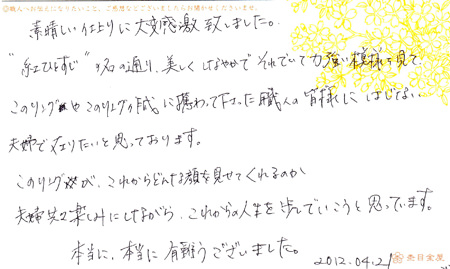 ◎職人へお伝えになりたいこと、ご感想などございましたらお聞かせくださいませ。
素晴しい仕上りに大変感激致しました。
"紅ひすじ"の名の通り、美しくはなやかでそれでいて力強い模様を見て、
このリングやこのリングの作成に携わって下さった職人の皆様にはじない
夫婦で在りたいと思っております。
このリングが、これからどんな顔を見せてくれるのか
夫婦共々楽しみにしながら、これからの人生を歩んでいこうと思っています。
本当に、本当に有難うございました。
2012.04.21
杢目金屋